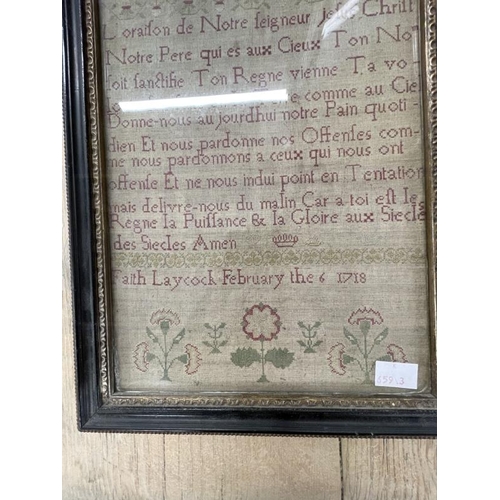 L'oraison de Notre seigneur Jesu Christ
Notre Pere qui es aux Cieux Ton No
soit sanctifie Ton Regne vienne Ta vo-
comme au Cie
Donne-nous aujourdhui notre Pain quoti-
dien Et nous pardonne nos Offenses com-
me nous pardonnons a ceux qui nous ont
offense Et ne nous indui point en Tentation
mais delivre-nous du malin Car a toi est le
Regne la Puissance & la Gloire aux Siecle
des Siecles Amen
Faith Laycock February the 6 1718